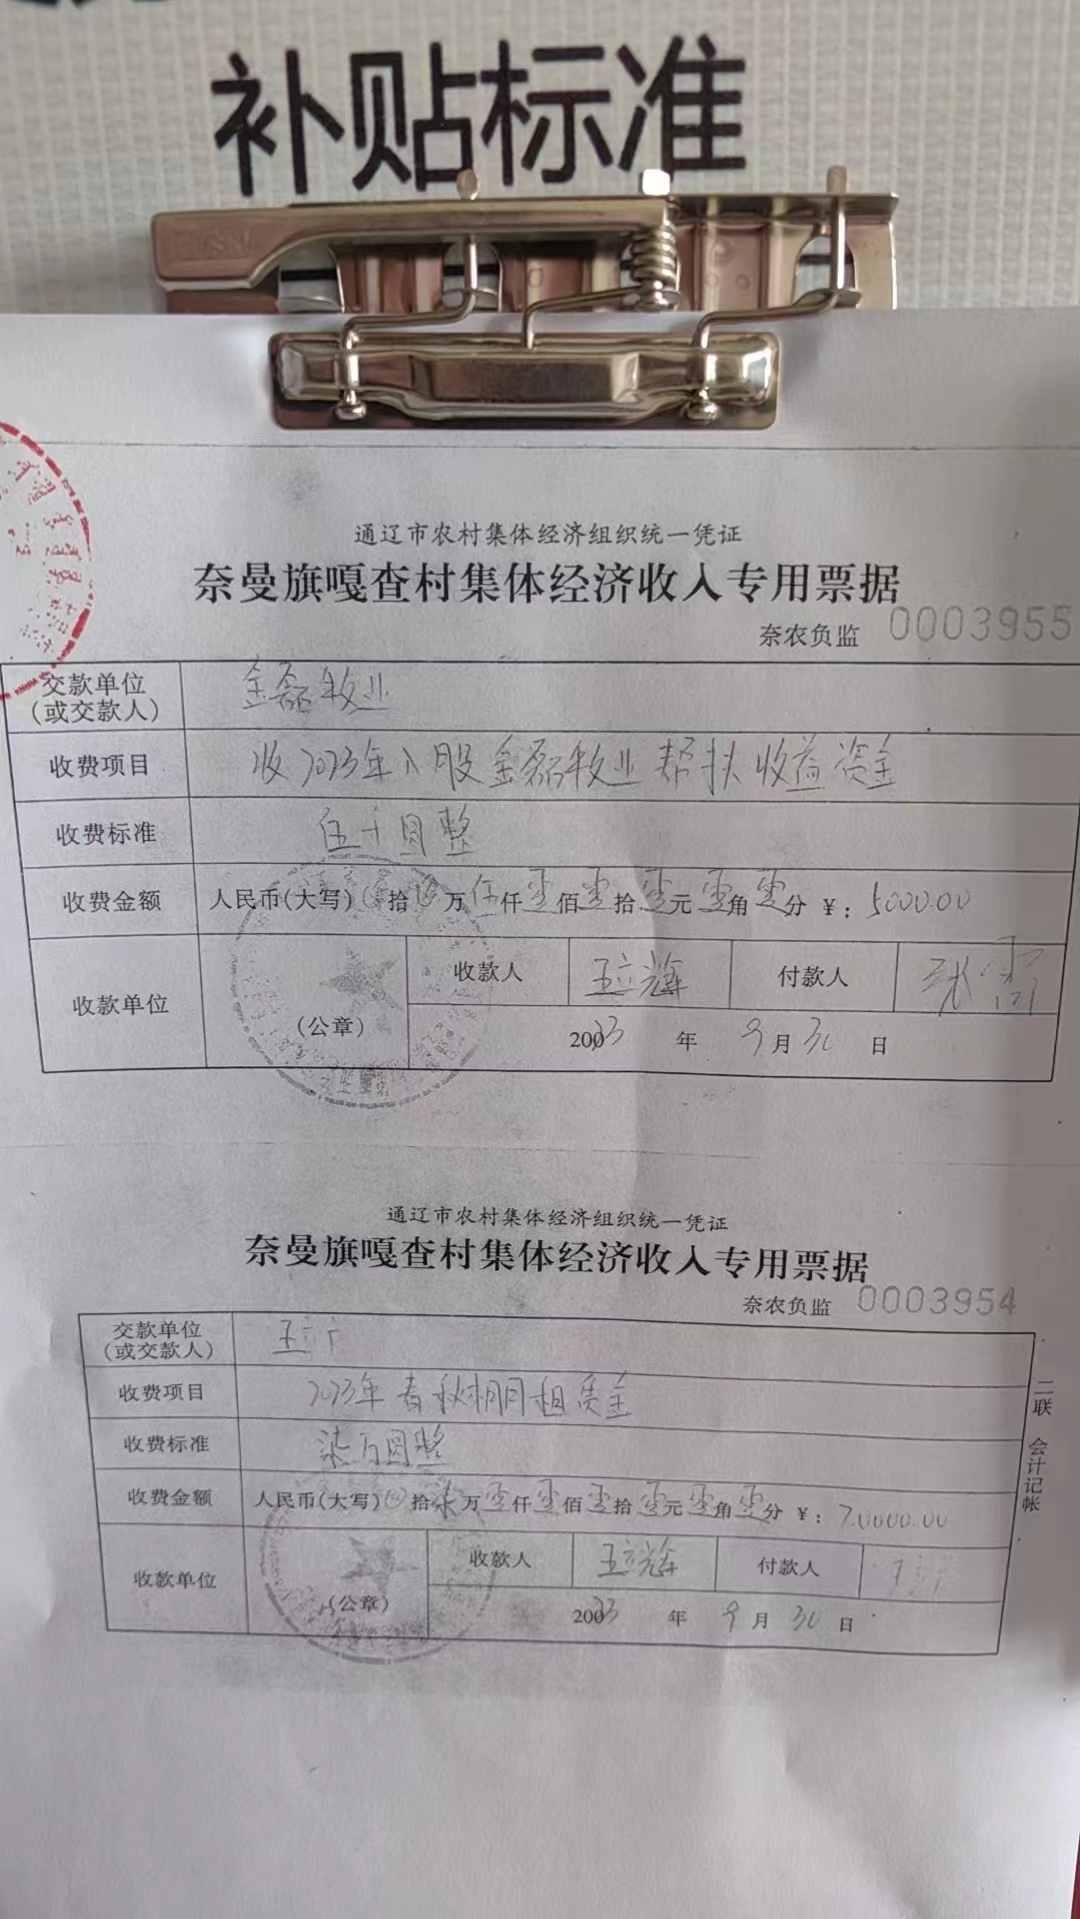 补贴标准
通辽市农村集体经济组织统一凭证
奈曼旗嘎查村集体经济收入专用票据
奈农负监 0003955
交款单位(或交款人) 金磊牧业
收费项目 收2023年入股金磊牧业帮扶收益资金
收费标准 伍仟圆整
收费金额 人民币(大写) 拾 万伍仟零佰零拾零元零角零分 ¥: 5000.00
收款单位 (公章) 收款人 王立辉 付款人 张雷
2023 年 9月30日
通辽市农村集体经济组织统一凭证
奈曼旗嘎查村集体经济收入专用票据
奈农负监 0003954
交款单位(或交款人) 王
收费项目 2023年春秋棚租赁金
收费标准 柒万圆整
收费金额 人民币(大写) 拾柒万零仟零佰零拾零元零角零分 ¥: 70000.00
收款单位 (公章) 收款人 王立辉 付款人
2023 年 9月30日
二联 会计记帐